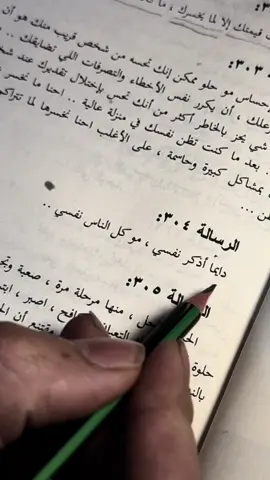 قيمتك إلا لما يخسرك، ما
٣٠٣:
حساس مو حلو ممكن إنك تحسه من شخص قريب منك هو أن
عليك، أن يكرر نفس الأخطاء والتصرفات اللي تضايقك ..
شي يحز بالخاطر أكثر من أنك تحس بإختلال تقديرك عند
.. بعد ما كنت تظن نفسك في منزلة عالية .. احنا ما نخسر
بمشاكل كبيرة وحاسمة، على الأغلب احنا نخسرها لما تتراكم
الرسالة ٣٠٤:
دايمًا أذكر نفسي، مو كل الناس نفسي ..
٣٠٥:
منها مرحلة مرة، صعبة
اصبر،
حلوة